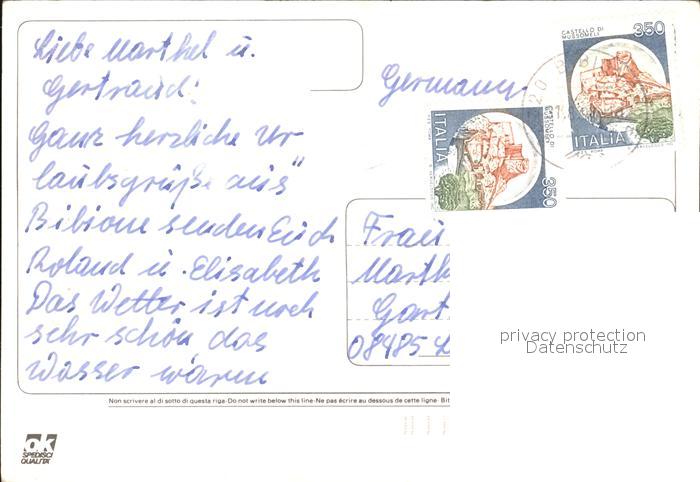 Liebe Marthel u.
Gertraud!
Ganz herzliche Ur
laubsgrüße aus"
Bibione senden Euch
Roland u. Elisabeth
Das Wetter ist noch
sehr schön das
Wasser warm
Germany
CASTELLO DI
MUSSOMELI
350
ITALIA
CASTELLO DI
MUSSOMELI
350
ITALIA
Frau
Marth
Gart
08485 L
privacy protection
Datenschutz
Non scrivere al di sotto di questa riga·Do not write below this line·Ne pas écrire au dessous de cette ligne· Bit
ok
SPEDISCI
QUALITA'